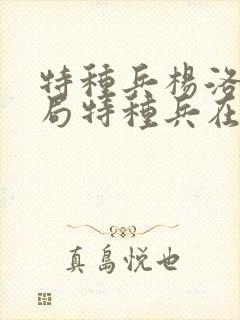 特種兵楊洛
局特種兵在
真島悅也